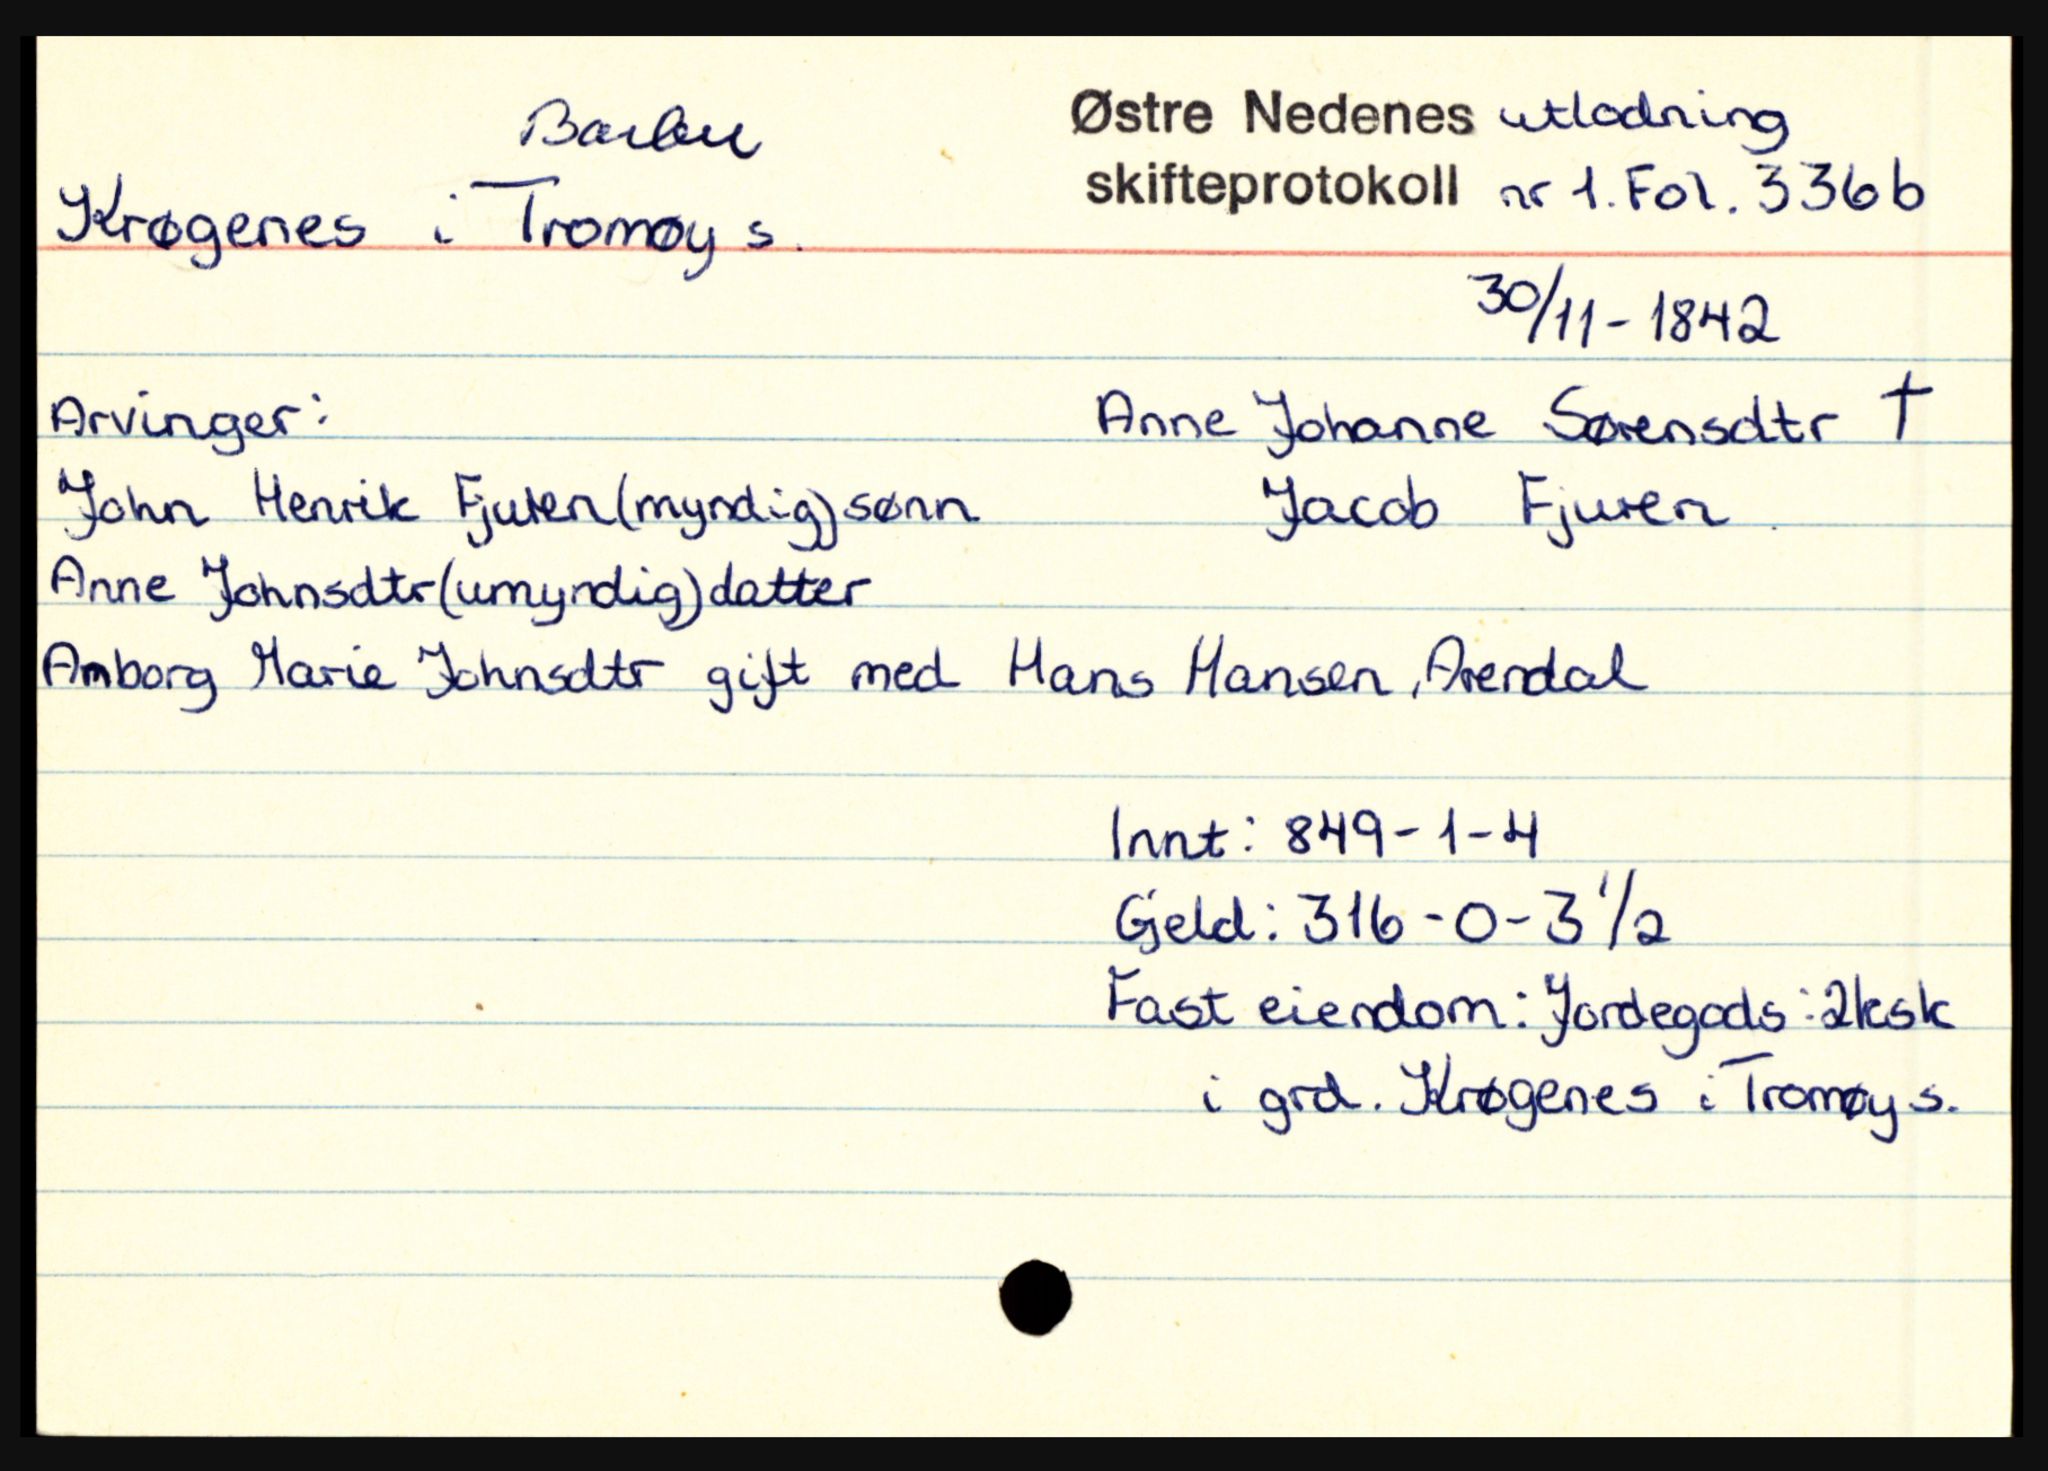 Barbu
Østre Nedenes utlodning
skifteprotokoll nr 1. Fol. 336b
Krøgenes i Tromøy s.
30/11-1842
Arvinger: Anne Johanne Sørensdtr †
John Henrik Fjuren (myndig) sønn Jacob Fjuren
Anne Johnsdtr (umyndig) datter
Amborg Marie Johnsdtr gift med Hans Hansen, Arendal
Innt: 849-1-4
Gjeld: 316-0-3 1/2
Fast eiendom: Jordegods: 2ksk
i grd. Krøgenes i Tromøy s.